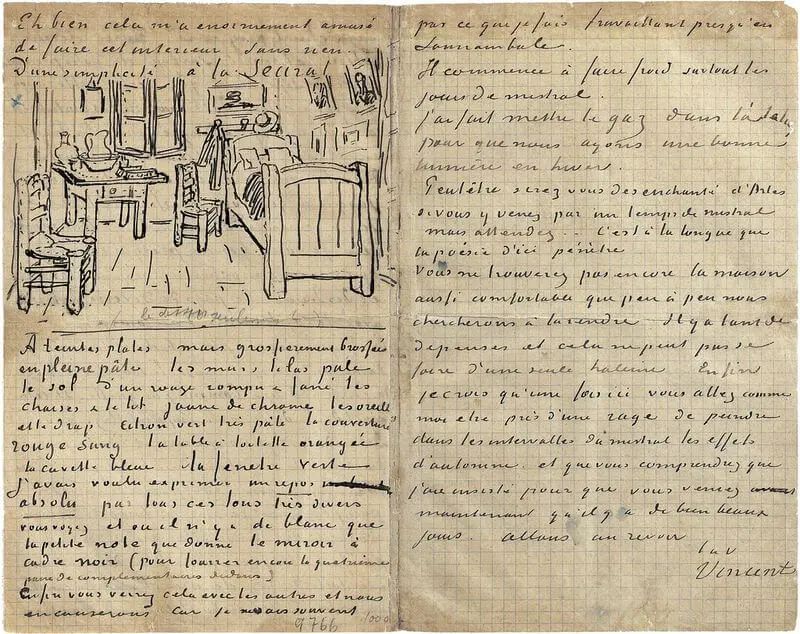 Eh bien cela m'a enormement amusé
de faire cet interieur sans rien.
D'une simplicité à la Seurat
À teintes plates mais grossierement brossées
en pleine pâte les murs lilas pale
le sol d'un rouge rompu & fané les
chaises & le lit jaune de chrome les oreillers
et le drap citron vert très pâle la couverture
rouge sang la table à toilette orangée
la cuvette bleue la fenetre verte
J'avais voulu exprimer un repos
absolu par tous ces tons très divers
vous voyez et où il n'y a de blanc que
la petite note que donne le miroir à
cadre noir (pour fourrer encore la quatrième
paire de complementaires dedans)
Enfin vous verrez cela avec les autres et nous
en causerons car je ne sais souvent
9766
1000
par ce que je fais travaillant presqu'en
somnambule.
Il commence à faire froid surtout les
jours de mistral.
J'ai fait mettre le gaz dans l'
pour que nous ayons une bonne
lumière en hiver.
Peutêtre serez vous desenchanté d'Arles
si vous y venez par un temps de mistral
mais attendez.. C'est à la longue que
la poésie d'ici pénètre
Vous ne trouverez pas encore la maison
aussi comfortable que peu à peu nous
chercherons à la rendre. Il y a tant de
depenses et cela ne peut pas se
faire d'une seule haleine Enfin
je crois qu'une fois ici vous allez comme
moi etre pris d'une rage de peindre
dans les intervalles du mistral les effets
d'automne. et que vous comprendrez que
j'aie insisté pour que vous veniez
maintenant qu'il y a de bien beaux
jours. allons au revoir
t. a v.
Vincent